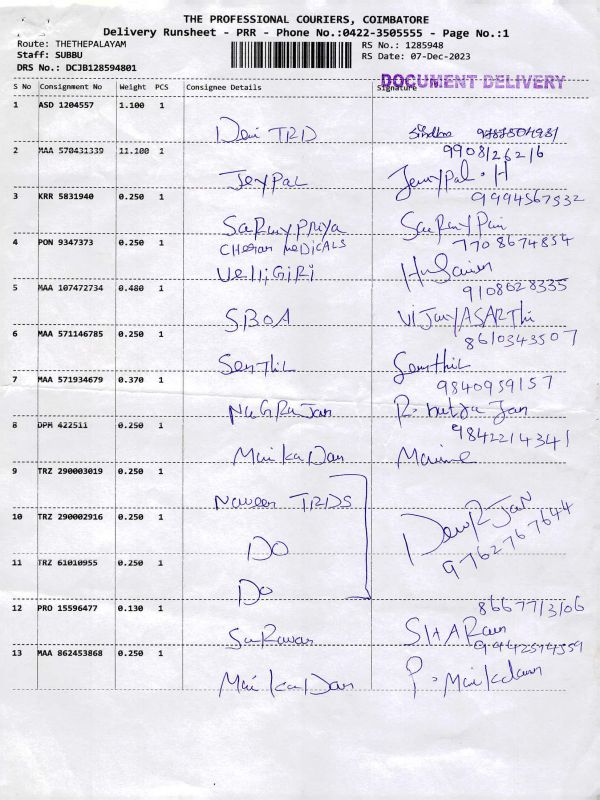 THE PROFESSIONAL COURIERS, COIMBATORE
Delivery Runsheet - PRR - Phone No.:0422-3505555 - Page No.:1
Route: THETHEPALAYAM
RS No.: 1285948
Staff: SUBBU
RS Date: 07-Dec-2023
DRS No.: DCJB128594801
DOCUMENT DELIVERY
S No Consignment No Weight PCS Consignee Details Signature
1 ASD 1204557 1.100 1
Devi TRD
2 MAA 570431339 11.100 1
9908126216
JeyPaL Jeyypal. H
3 KRR 5831940 0.250 1
9994567532
SaRanyPriya
4 PON 9347373 0.250 1
CHeran MeDICALS 7708674854
VelliGiRi
5 MAA 107472734 0.480 1
9108628335
SBOA VIJayASARThi
6 MAA 571146785 0.250 1
8610343507
SenThiL Senthil
7 MAA 571934679 0.370 1
9840959157
NaGRaJan
8 DPM 422511 0.250 1
9842214341
ManikaDan
9 TRZ 290003019 0.250 1
Naveen TRDS
10 TRZ 290002916 0.250 1
DO
9762767644
11 TRZ 61010955 0.250 1
DO
12 PRO 15596477 0.130 1
8667713106
Sarawan SHARan
13 MAA 862453868 0.250 1
ManikaDan P. Manikdann